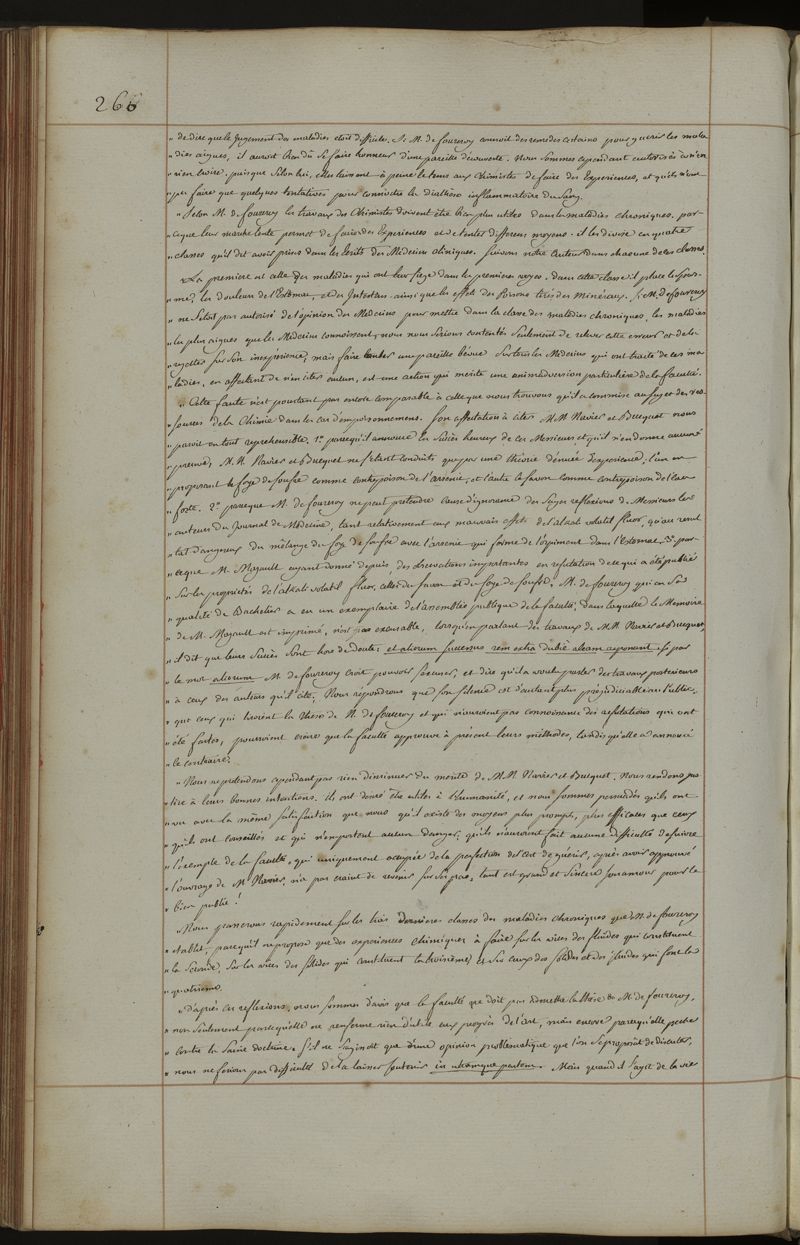 266
" de dire que le Jugement des maladies etoit difficile. Si M. de fourcroy connoit des remedes certains pour guerir les mala
" dies aigues, il auroit bien dû se faire honneur d'une pareille découverte. Nous sommes cependant autorisés à n'en
" rien croire, puisque selon lui, elles laissent à peine le tems aux Chimistes de faire des Experiences, et qu'ils n'ont
" pu faire que quelques tentatives pour connoitre la diathèse inflammatoire du Sang.
" Selon M. de fourcroy les travaux des Chimistes doivent être bien plus utiles dans les maladies chroniques, par-
" ceque leur marche lente permet de faire des Experiences et de tenter differens moyens. il les divise en quatre
" classes qu'il dit avoir prises dans les Ecrits des Médecins cliniques. Suivons notre Auteur dans chacune de ces classes.
" La premiere est celle des maladies qui ont leur siege dans les premieres voyes. dans cette classe il place le Spas-
" me, les douleurs de l'Estomac, et des Intestins ainsi que les effets des poisons tirés des Mineraux. Si M. de fourcroy
" ne s'étoit pas autorisé de l'opinion des Medecins pour mettre dans la classe des maladies chroniques, les maladies
" les plus aigues que les Médecins connoissent, nous nous serions contentés seulement de relever cette erreur et de la
" rejetter sur son inexperience, mais faire tomber une pareille bévue sur tous les Médecins qui ont traité de ces ma
" ladies, en affectant de n'en citer aucun, est une action qui merite une animadversion particulière de la faculté.
" Cette faute n'est pourtant pas encore comparable à celle que nous trouvons qu'il a commise au sujet des res-
" sources de la Chimie dans les cas d'empoisonnemens. Son affectation à citer M.M. Navier et Bucquet nous
" paroit en tout reprehensible. 1° parcequ'il annonce les succès heureux de ces Messieurs et qu'il n'en donne aucune
" preuve, M.M. Navier et Bucquet ne s'étant conduits que par une théorie dénuée d'experience; l'un en
" proposant le foye de soufre comme contrepoison de l'arsenic, et l'autre le savon comme contrepoison de l'eau
" forte. 2° parceque M. de fourcroy ne peut pretendre cause d'ignorance des sages reflexions de Messieurs les
" auteurs du Journal de Médecine, tant relativement aux mauvais effets de l'alcali volatil fluor, qu'au resul
" tat dangereux du mélange du foye de soufre avec l'arsenic qui forme de l'orpiment dans l'Estomac. 3° par-
" ceque M. Mazault ayant donné depuis, des observations importantes en refutation de ce qui a été publié
" sur les proprietés de l'alcali volatil fluor, celles du savon et du foye de soufre, M. de fourcroy qui en sa
" qualité de Bachelier a eu un exemplaire de l'assemblée publique de la faculté, dans laquelle le Memoire
" de M. Mazault est imprimé, n'est pas excusable, lorsqu'en parlant des travaux de M.M. Navier et Bucquet,
" il dit que leurs succès sont hors de doute; et aliorum successus rem extra dubii aleam exponant. Si par
" le mot aliorum M. de fourcroy croit pouvoir s'excuser, et dire qu'il a voulu parler des travaux posterieurs
" à ceux des auteurs qu'il cite; Nous repondrons que son silence est d'autant plus prejudiciable au Public,
" que ceux qui liroient la these de M. de fourcroy et qui n'auroient pas connoissance des refutations qui ont
" été faites, pourroient croire que la faculté approuve à présent leurs méthodes, tandis qu'elle a annoncé
" le contraire.
" Nous ne pretendons cependant pas rien diminuer du merite de M.M. Navier et Bucquet. Nous rendons jus
" tice à leurs bonnes intentions. ils ont désiré être utiles à l'humanité, et nous sommes persuadés qu'ils ont
" vu avec la même satisfaction que nous qu'il existe des moyens plus prompts, plus efficaces que ceux
" qu'ils ont conseillés et qui n'emportent aucun danger; qu'ils n'auroient fait aucune difficulté de suivre
" l'exemple de la faculté, qui uniquement occupée de la perfection de l'art de guérir, après avoir approuvé
" l'ouvrage de M. Navier, n'a pas craint de revenir sur ses pas, tant est grand et sincere son amour pour le
" bien public!
" Nous passerons rapidement sur les trois dernieres classes des maladies chroniques que M. de fourcroy
" etablit, parcequ'il ne propose que des experiences chimiques à faire sur les vices des fluides qui constituent
" la seconde, sur les vices des solides qui constituent la troisième, et sur ceux des solides et des fluides qui font la
" quatrieme.
" D'après ces reflexions, nous sommes d'avis que la faculté ne doit pas admettre la thèse de M. de fourcroy,
" non seulement parcequ'elle ne renferme rien d'utile aux progrès de l'art, mais encore parcequ'elle peche
" contre la saine doctrine. S'il ne s'agissoit que d'une opinion problématique que l'on se proposât de discuter,
" nous ne ferions pas difficulté de la laisser soutenir in utramque partem. Mais quand il s'agit de la vie